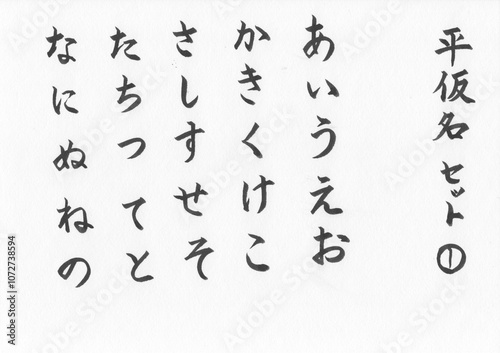 平仮名セット①
あいうえお
かきくけこ
さしすせそ
たちつてと
なにぬねの
Adobe Stock | #1072738594